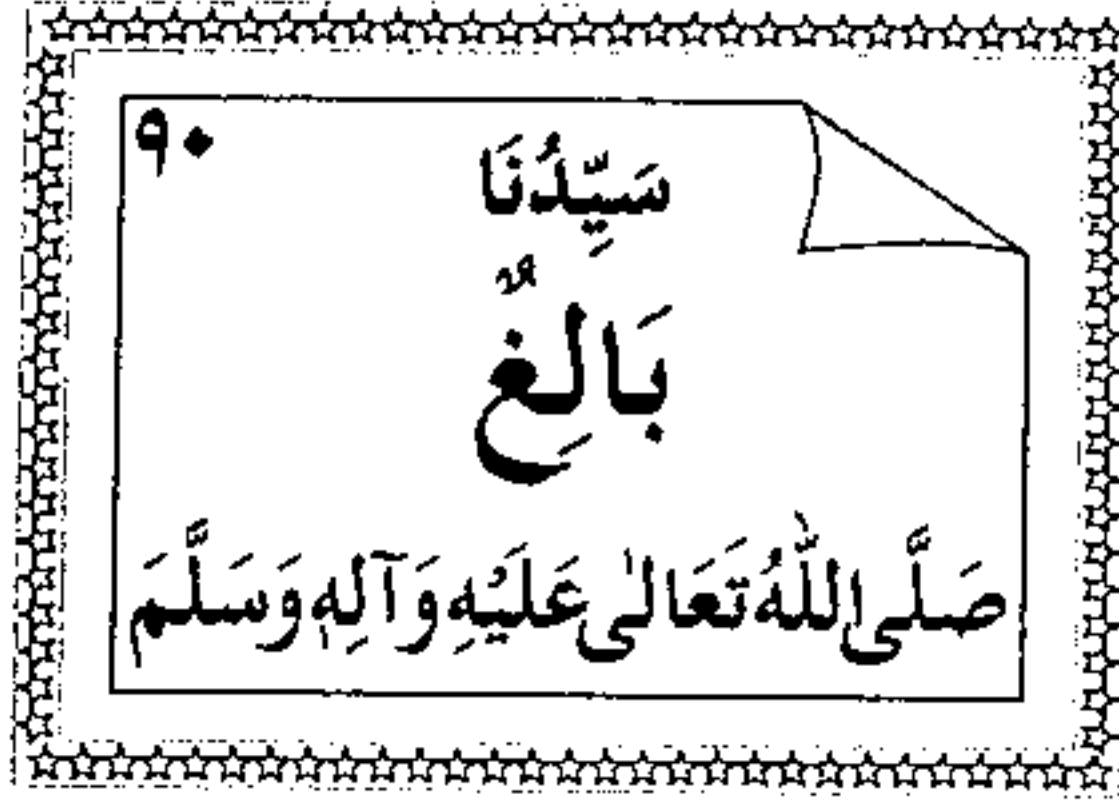 ٩٠
سَيِّدُنَا
بَالِغٌ
صَلَّى اللّٰهُ تَعَالٰى عَلَيْهِ وَآلِهٖ وَسَلَّمَ